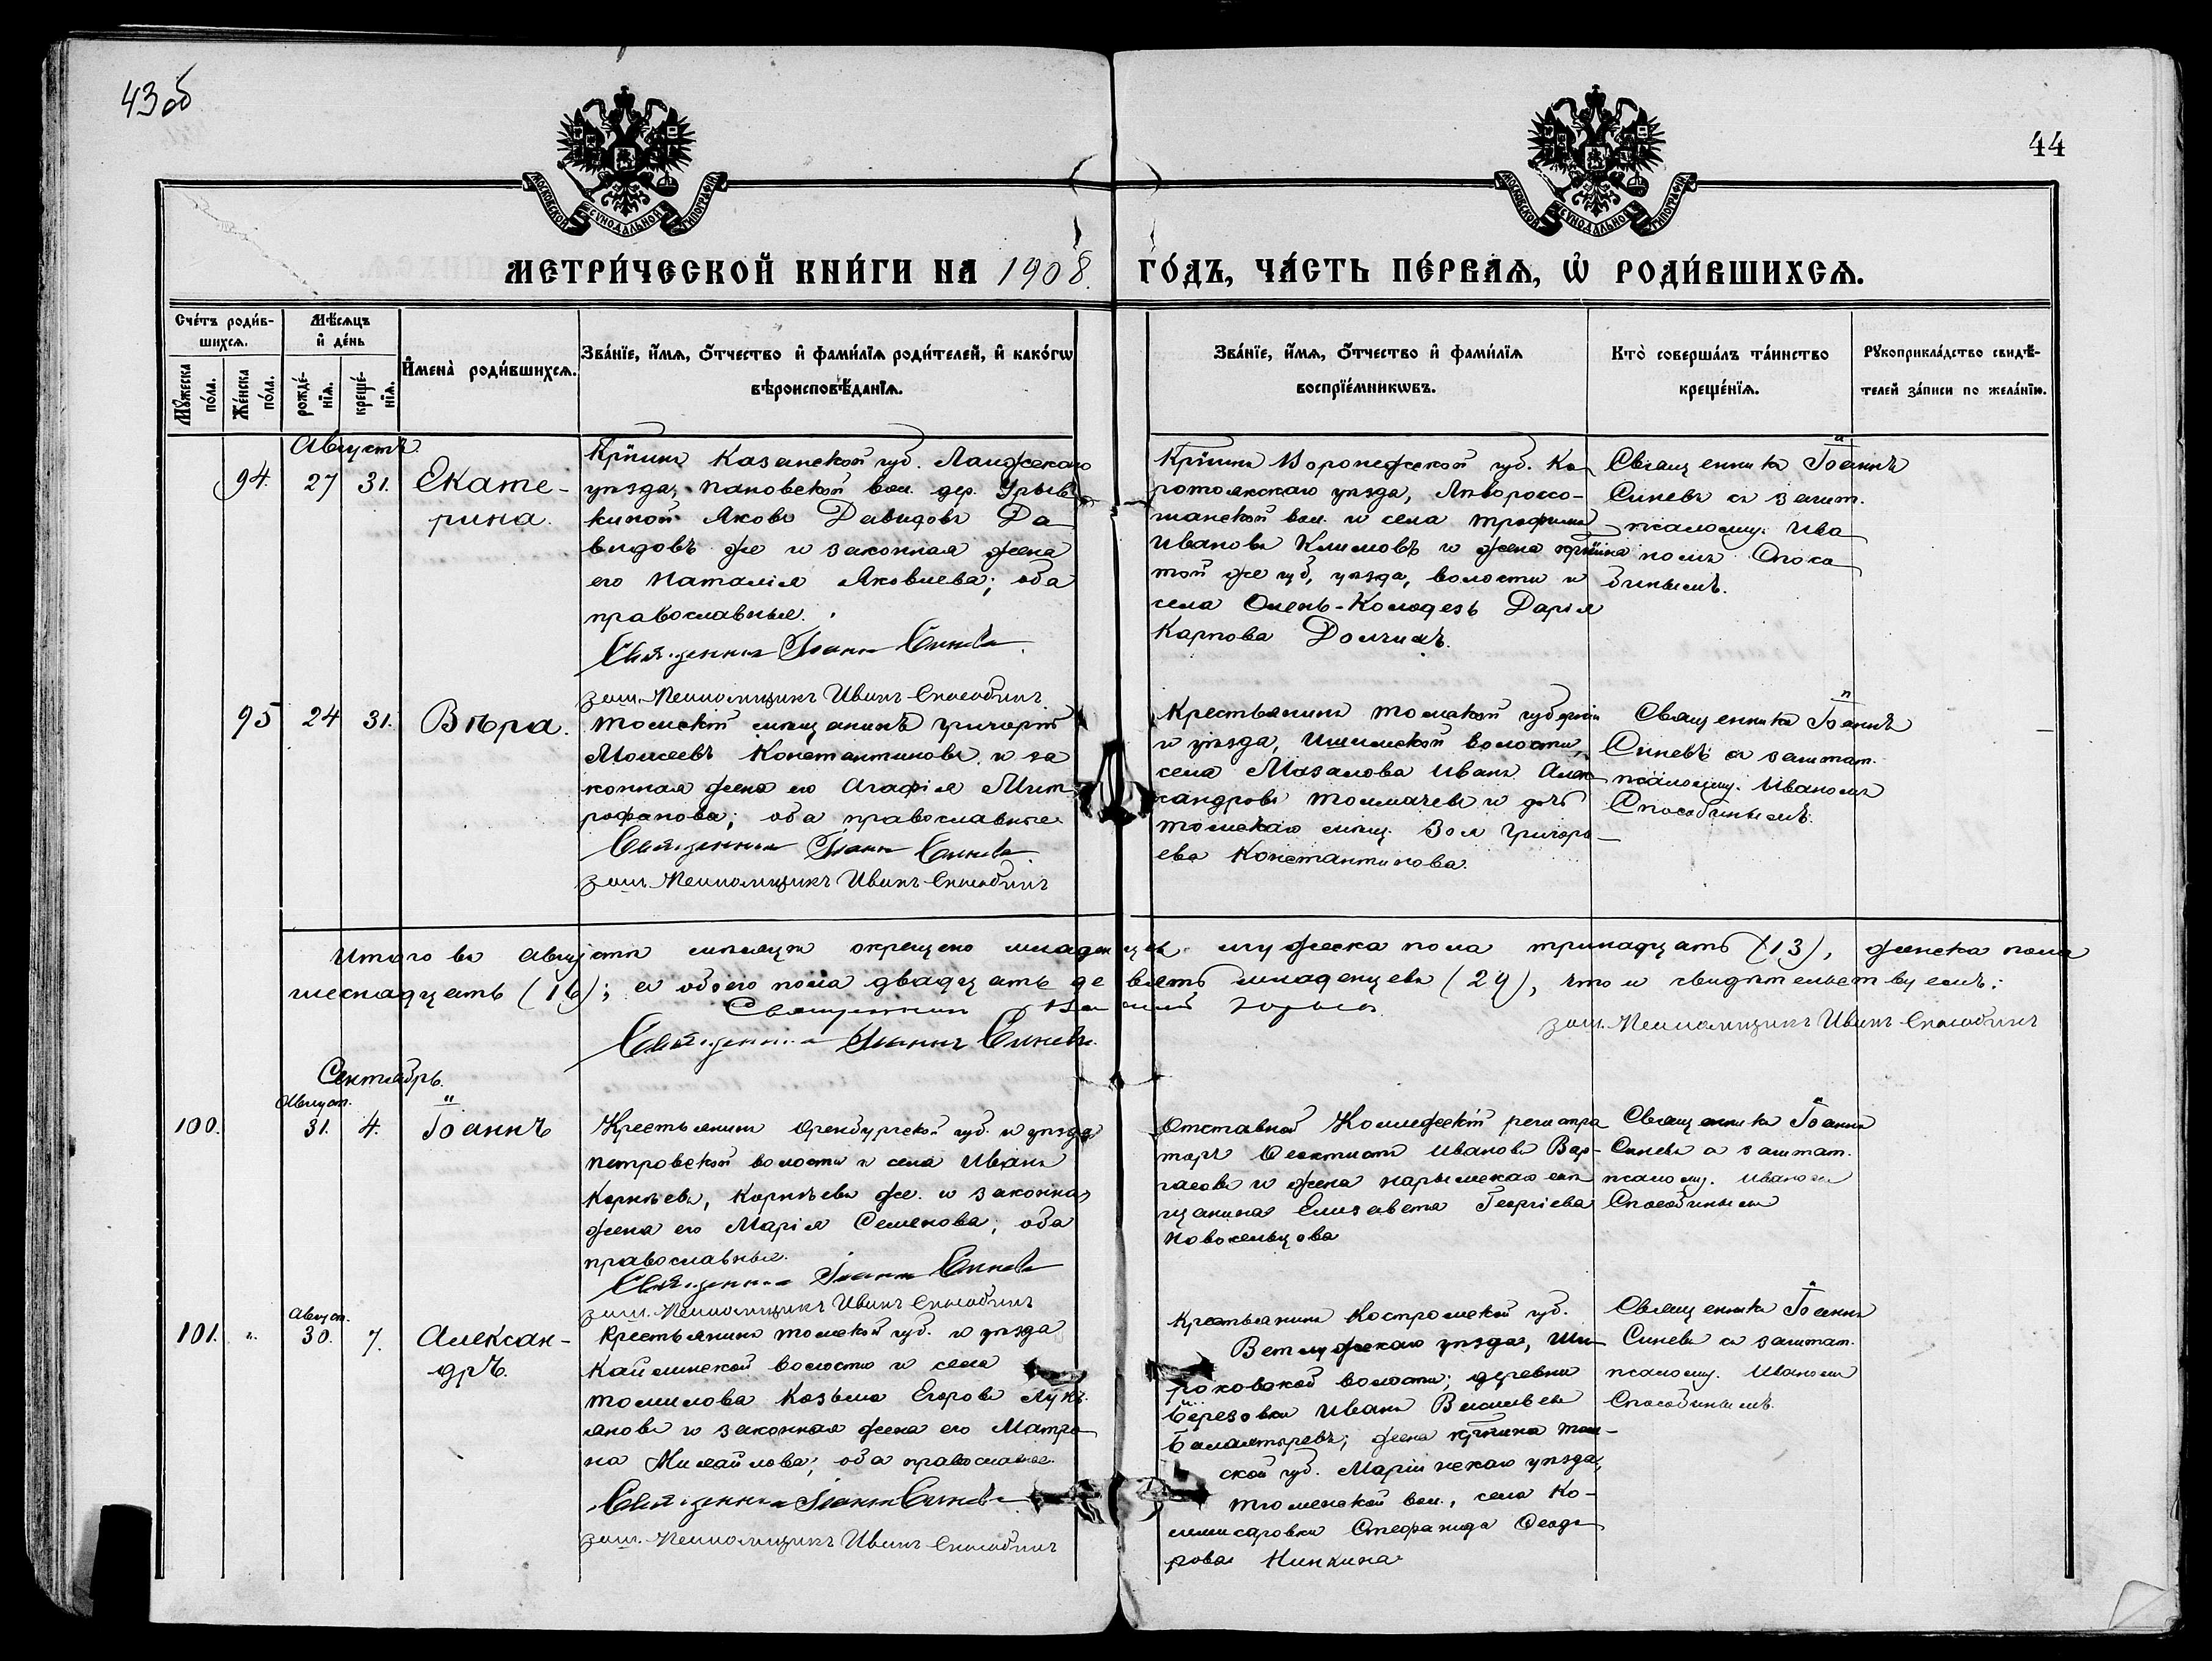 43 об
44
МОСКОВСКОЙ СУНОДАЛЬНОЙ ТИПОГРАФІИ
МОСКОВСКОЙ СУНОДАЛЬНОЙ ТИПОГРАФІИ
МЕТРИ́ЧЕСКОЙ КНИ́ГИ НА 1908.
ГО́ДЪ, ЧА́СТЬ ПЕ́РВАЯ, Ѡ РОДИ́ВШИХСЯ.
Сче́тъ роди́в-
шихся.
Мꙋжеска по́ла.
Же́нска по́ла.
Мѣ́сяцъ
и҆ де́нь
рожде́-
нїя.
креще́-
нїя.
И҆мена̀ роди́вшихся.
Зва́нїе, и҆́мя, ѻ҆́тчество и҆ фами́лїя роди́телей, и҆ како́гѡ
вѣроисповѣ́данїя.
Зва́нїе, и҆́мя, ѻ҆́тчество и҆ фами́лїя
воспрїе́мникѡвъ.
Кто̀ соверша́лъ та́инство
креще́нїя.
Рꙋкоприкла́дство свидѣ́-
телей за́писи по жела́нїю.
Августъ.
94. 27 31. Екате-
рина.
Кр̃нинъ Казанской губ. Лаишевскаго
уѣзда, Пановской вол. дер.
Яковъ Давидовъ Да
видовъ же и законная жена
его Наталія Яковлева; оба
православные.
Священникъ Іоаннъ Синевъ.
заш. Псаломщикъ Иванъ Способинъ
Кр̃нинъ Воронежской губ. Ко
ротоякскаго уѣзда,
вол. и села Трофимъ
Ивановъ Климовъ и жена кр̃нина
той же губ, уѣзда, волости и
села Олень-Колодезь Дарія
Карпова
Священникъ Іоаннъ
Синевъ съ зашт.
псаломщ. Ива
номъ Спосо
бинымъ.
95 24 31. Вѣра.
Томскій мѣщанинъ Григорій
Моисеевъ Константиновъ и за
конная жена его Агафія Мит
рофанова; оба православные.
Священникъ Іоаннъ Синевъ.
заш. Псаломщикъ Иванъ Способинъ
Крестьянинъ Томской губерніи
и уѣзда, Ишимской волости,
села Мазалова Иванъ Алек
сандровъ Толмачевъ и дочь
томскаго мѣщ. Зоя Григорь
ева Константинова.
Священникъ Іоаннъ
Синевъ съ заштат.
псаломщ. Иваномъ
Способинымъ.
Итого въ августѣ мѣсяцѣ окрещено младенцевъ мужеска пола тринадцать (13), женска пола
шеснадцать (16); а обоего пола двадцать девять младенцевъ (29), что и свидѣтельствуемъ:
Священникъ
Священникъ Іоаннъ Синевъ.
заш. Псаломщикъ Иванъ Способинъ
Сентябрь.
Август.
100. 31. 4. Іоаннъ
Крестьянинъ Оренбургской губ. и уѣзда
Петровской волости и села Иванъ
Корнѣевъ, Корнѣевъ же и законная
жена его Марія Семенова; оба
православные.
Священникъ Іоаннъ Синевъ
заш. Псаломщикъ Иванъ Способинъ
Отставной Коллежскій регистра
торъ Феоктистъ Ивановъ Вар-
гасовъ и жена нарымскаго мѣ
щанина Елизавета Георгіева
Новосельцова
Священникъ Іоаннъ
Синевъ съ заштат.
псаломщ. Иваномъ
Способинымъ
Август.
101. 30. 7. Алексан-
дръ.
Крестьянинъ Томской губ. и уѣзда
Кайлинской волости и села
Томилова Козьма Егоровъ Лукь
яновъ и законная жена его Матро
на Михайлова; оба православные.
Священникъ Іоаннъ Синевъ
заш. Псаломщикъ Иванъ Способинъ
Крестьянинъ Костромской губ.
Ветлужскаго уѣзда, Ши
роковской волости; деревни
Березовки Иванъ Васильевъ
жена кр̃нина Том-
ской губ. Маріинскаго уѣзда,
Тюменской вол., села Ко-
мисаровки Стефанида Феодо
рова Нинкина
Священникъ Іоаннъ
Синевъ съ заштат.
псаломщ. Иваномъ
Способинымъ.